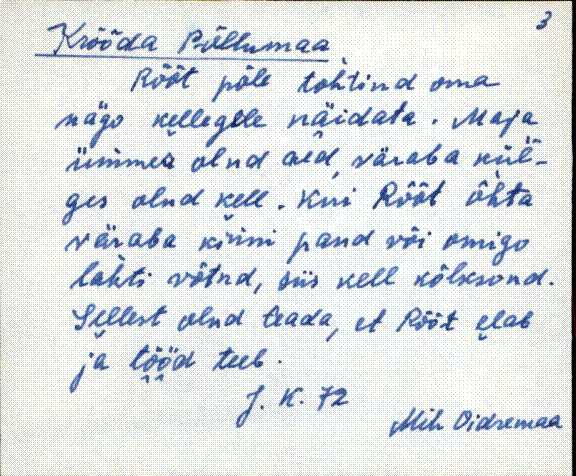 3
Krõõda Põllumaa
Rõõt põle tohtind oma
nägo kellegile näidata. Maja
ümmea olnd aed, väraba kül-
ges olnd kell. Kui Rõõt õhta
väraba kinni pand või omigo
lahti võtnd, siis kell kõlksond.
Sellest olnd teada, et Rõõt elab
ja tööd teeb.
J. K. 72
Mih. Oidremaa